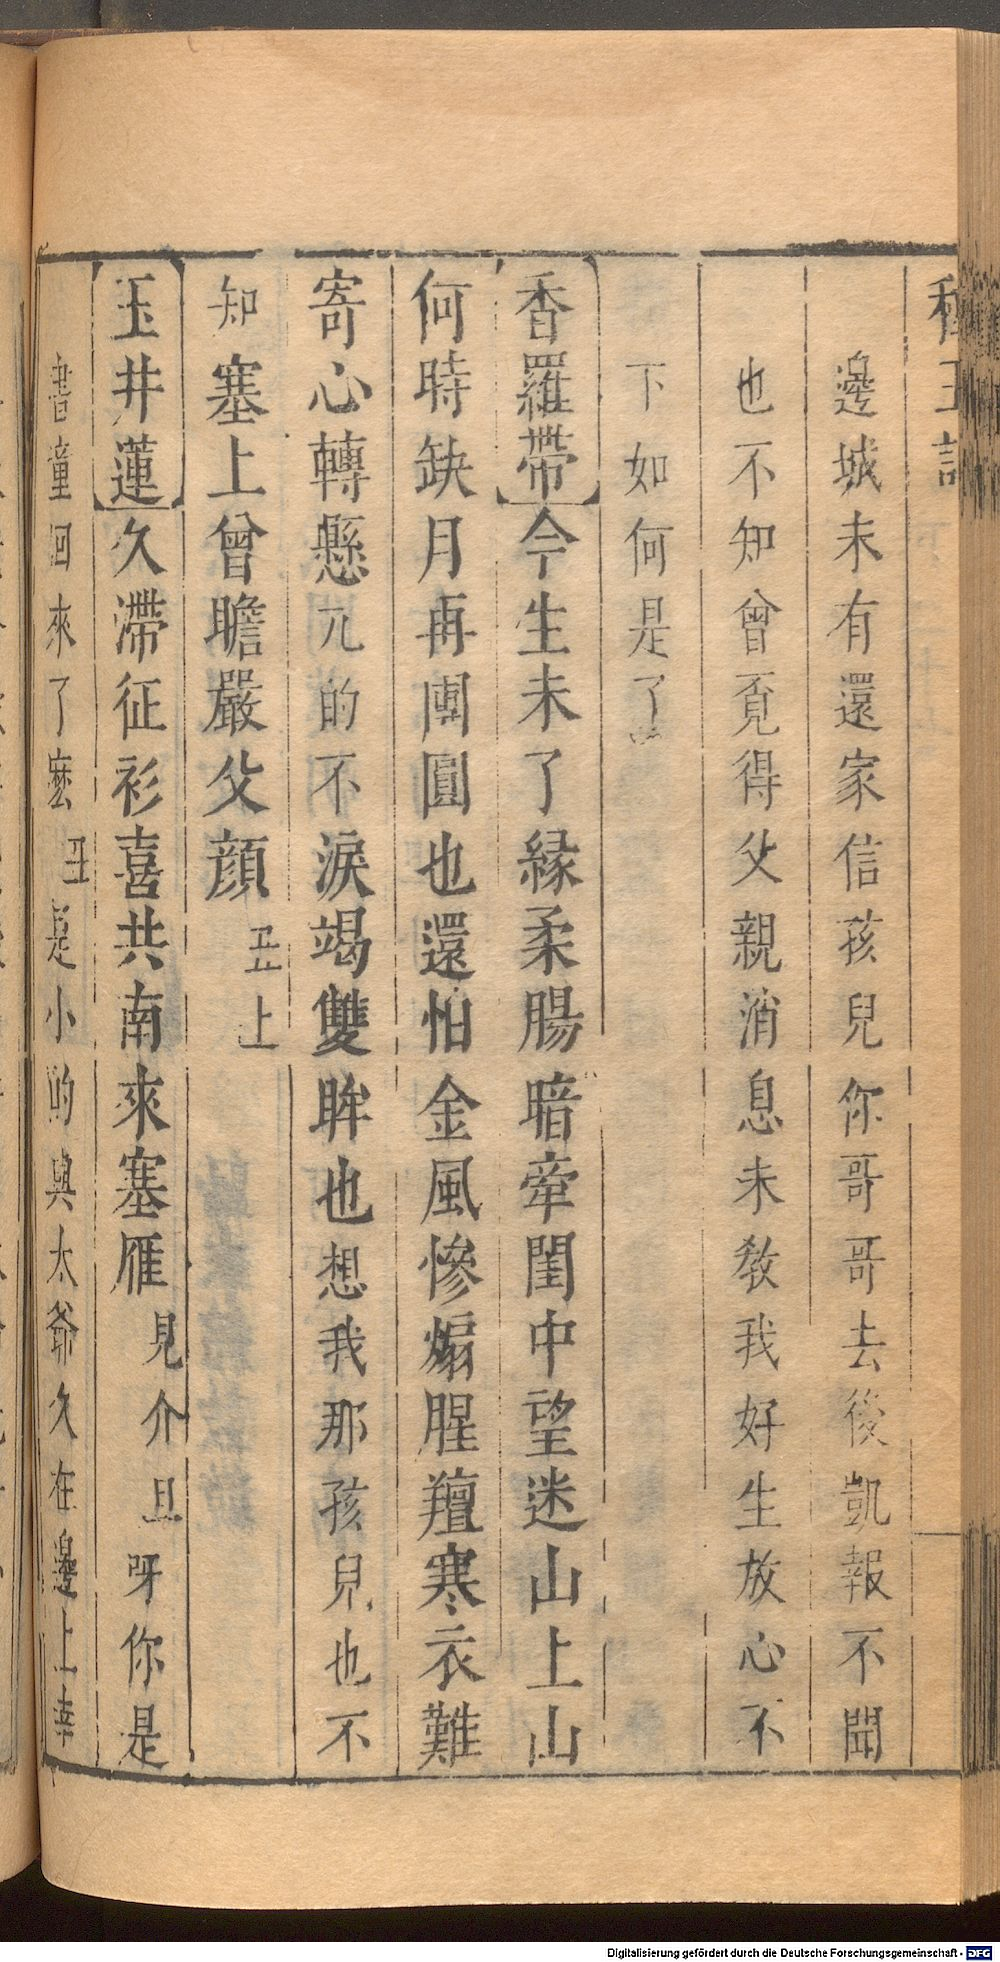 種玉記
邊城未有還家信孩兒你哥哥去後凱報不聞
也不知曾覓得父親消息未教我好生放心不
下如何是了
香羅帶今生未了緣柔腸暗牽閨中望迷山上山
何時缺月再團圓也還怕金風慘煽腥羶寒衣難
寄心轉懸兀的不淚竭雙眸也想我那孩兒也不
知塞上曾瞻嚴父顔丑上
玉井蓮久滯征衫喜共南來塞雁見介旦呀你是
書童回來了麽丑是小的與太爺久在邊上幸
Digitalisierung gefördert durch die Deutsche Forschungsgemeinschaft - DFG